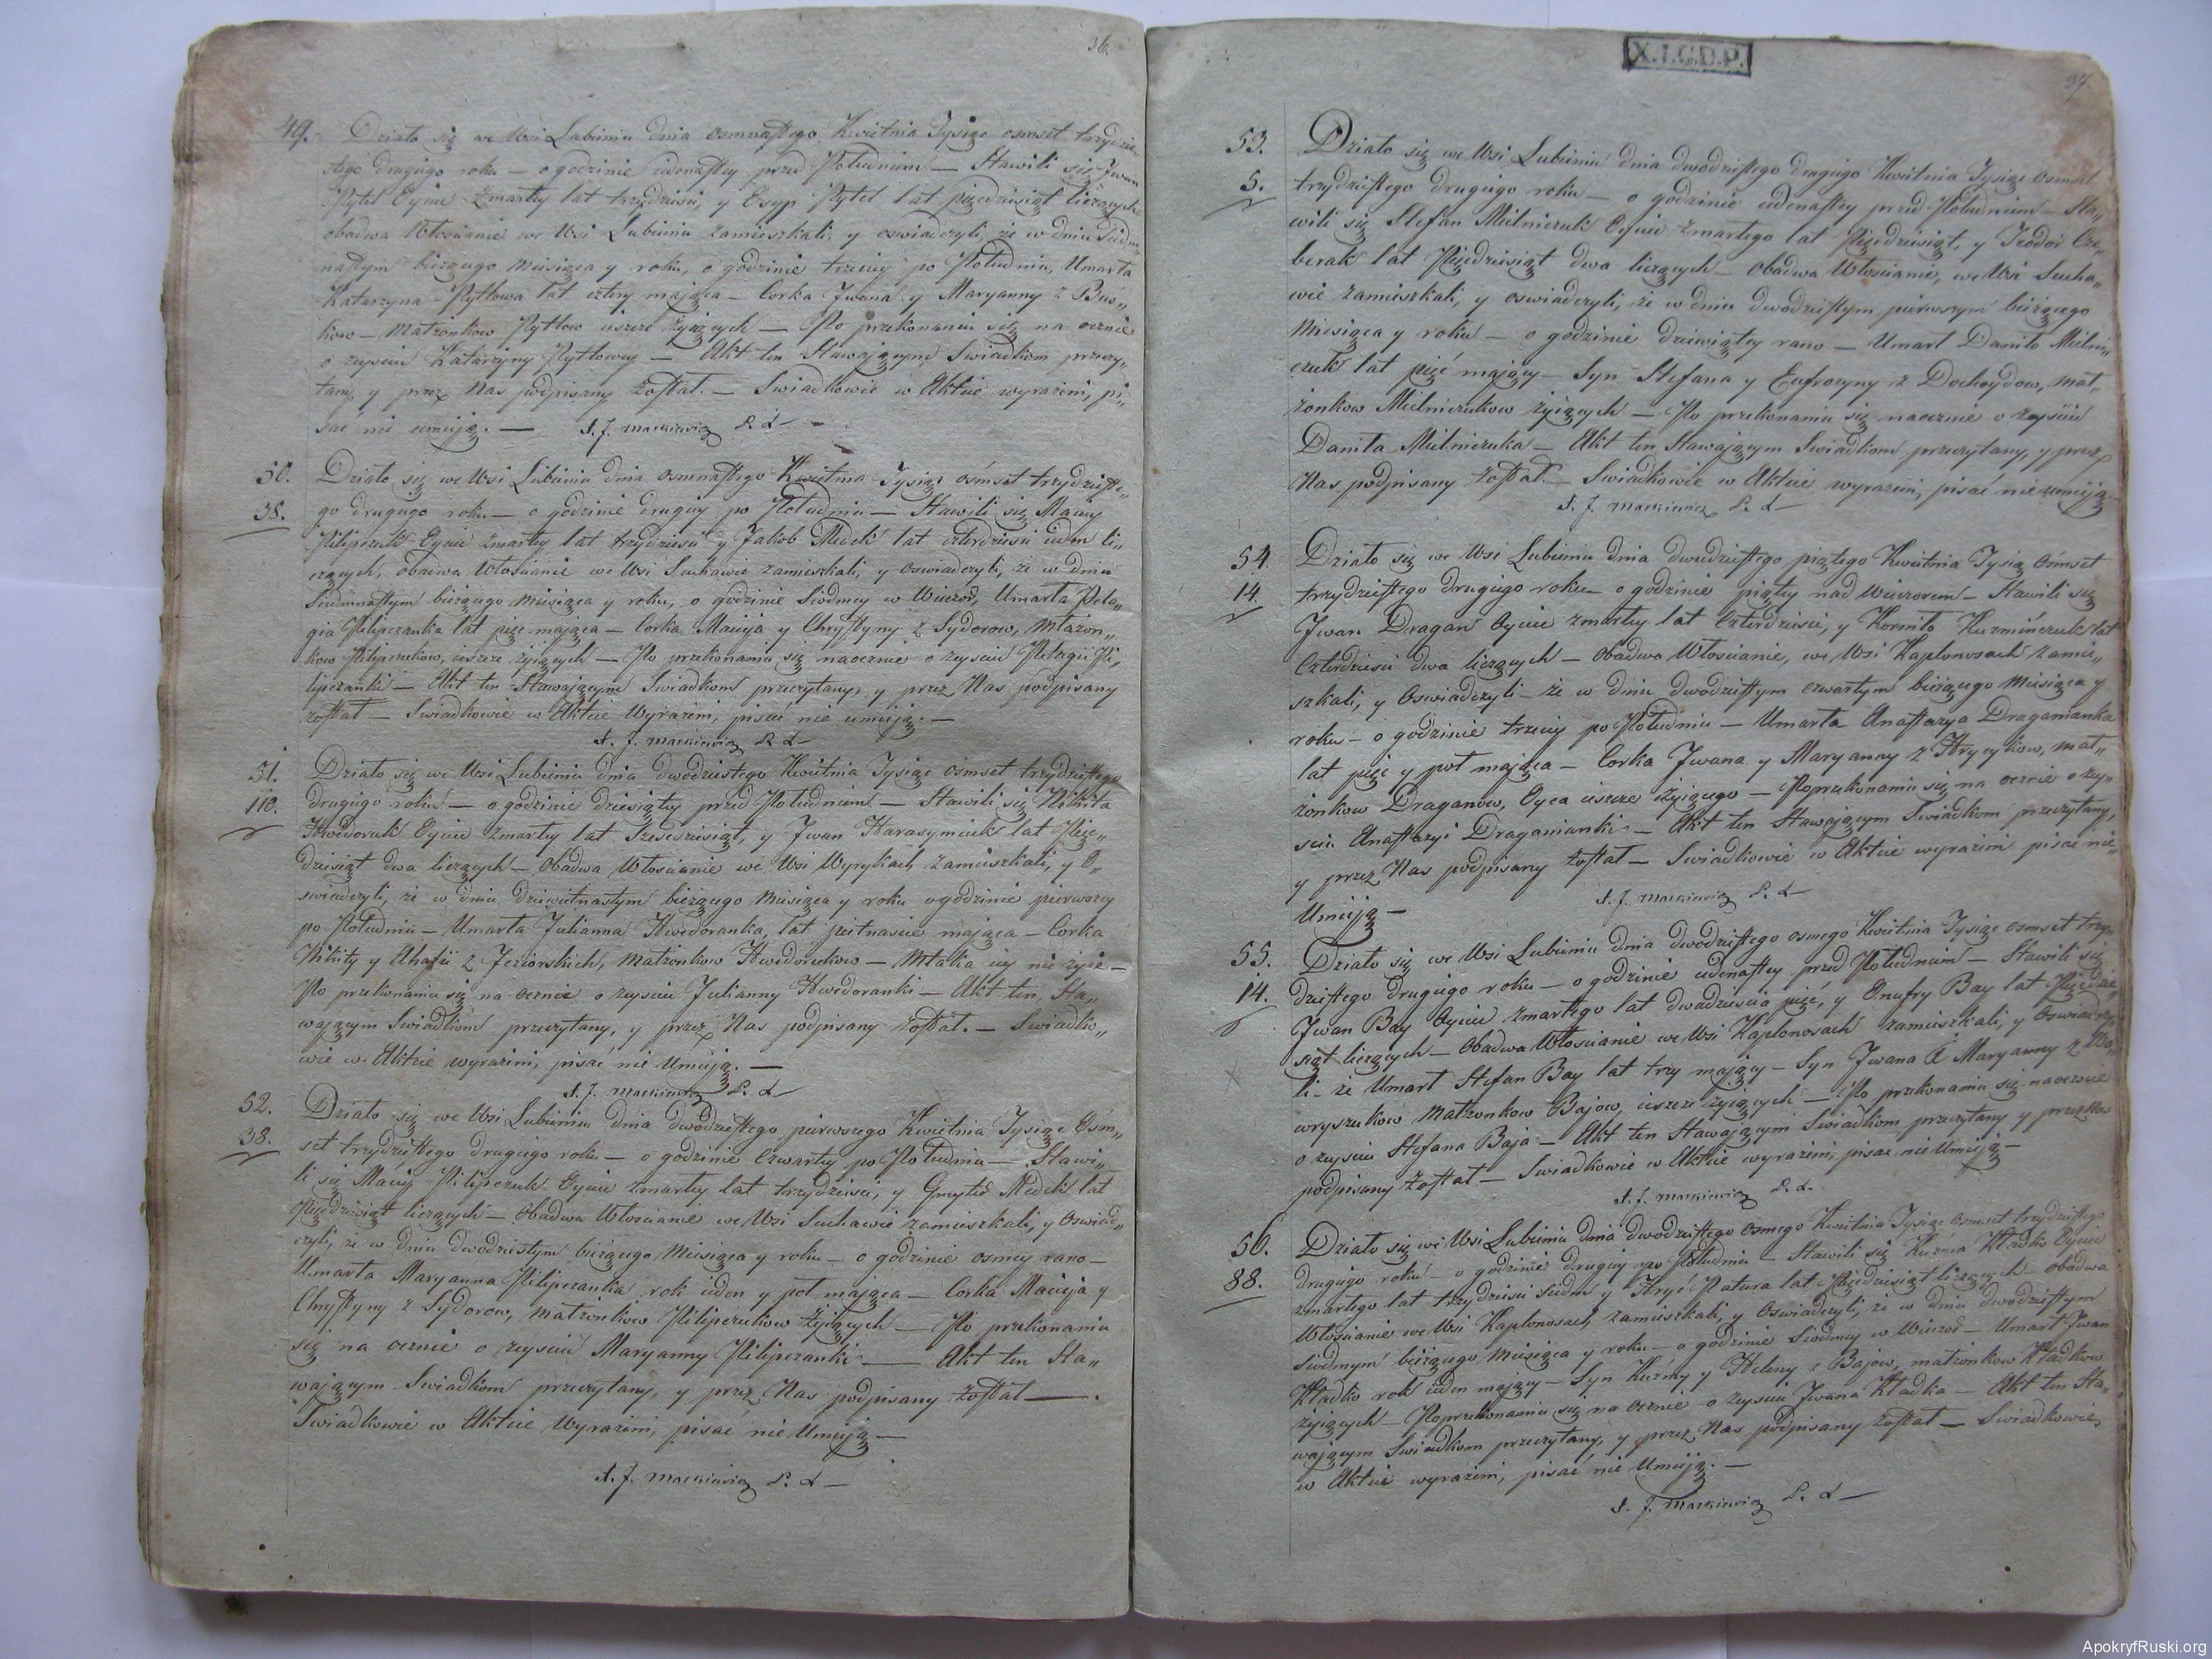 36.
49. Działo się we Wsi Lubieniu dnia osmnastego Kwietnia Tysiąc osmset trzydzie„
stego drugiego roku — o godzinie iedenastey przed Południem — Stawili się Jwan
Pytel Oyciec zmarłey lat trzydzieści, y Osyp Pytel lat pięcdziesiąt liczących
obadwa Włościanie we Wsi Lubieniu zamieszkali, y oswiadczyli, że w dniu Siedm„
nastym bieżącego Miesiąca y roku, o godzinie trzeciey po Południu, Umarła
Katarzyna Pytlowa lat cztery maiąca — Corka Jwana y Maryanny z Bus„
kow — Matżonkow Pytlow ieszcze żyiących — Po przekonaniu się na ocznie
o zeysciu Katarzyny Pytlowey — Akt ten Stawaiącym Swiadkom przeczy„
tany, y przez Nas podpisany został. — Swiadkowie w Akcie wyrażeni, pi„
sać nie umieią. — X. J. Mackiewicz P. L —
50. Działo się we Wsi Lubieniu dnia osmnastego Kwietnia Tysiąc ośmset trzydzieste„
38. go drugiego roku — o godzinie drugiey po Południu — Stawili się Maciey
Pilipczuk Oyciec zmarłey lat trzydzieści y Jakob Medek lat czterdzieści ieden li„
czących, obadwa Włościanie we Wsi Suchawie zamieszkali, y oswiadczyli, że w dniu
Siedmnastym bieżącego Miesiąca y roku, o godzinie Siodmey w Wieczor, Umarła Pela„
gia Pilipczanka lat pięc maiąca — Corka Macieja y Chrystyny z Sydorow, Matżon„
kow Pilipczukow, ieszcze żyiących — Po przekonaniu się naocznie o zeysciu Pelagii Pi„
lipczanki — Akt ten Stawaiącym Swiadkom przeczytany, y przez Nas podpisany
został — Swiadkowie w Akcie Wyrażeni, pisać nie umieią. —
X. J. Mackiewicz P. L —
51. Działo się we Wsi Lubieniu dnia dwódziestego Kwietnia Tysiąc osmset trzydziestego
110. drugiego roku — o godzinie dziesiątey przed Południem — Stawili się Nikita
Hwedoruk Oyciec zmarłey lat Sześcdziesiąt, y Jwan Harasymiuk lat Pięc„
dziesiąt dwa liczących — Obadwa Włościanie we Wsi Wyrykach zamieszkali, y O„
swiadczyli, że w dniu dziewietnastym bieżącego Miesiąca y roku o godzinie pierwszey
po Południu — Umarła Julianna Hwedoranka, lat pietnascie maiąca — Corka
Nikity y Ahafii z Jeziorskich, Matżonkow Hwedorukow — Matka iey nie żyie —
Po przekonaniu się na ocznie o zeysciu Julianny Hwedoranki — Akt ten, Sta„
waiącym Swiadkom przeczytany, y przez Nas podpisany został. — Swiadko„
wie w Akcie wyrażeni, pisać nie Umieią. —
X. J. Mackiewicz P. L —
52. Działo się we Wsi Lubieniu dnia dwódziestego pierwszego Kwietnia Tysiąc Osm„
38. set trzydziestego drugiego roku — o godzinie Czwartey po Południu — Stawi„
li się Maciey Pilipczuk Oyciec zmarłey lat trzydzieści, y Gmyter Medek lat
Pięcdziesiąt liczących — Obadwa Włościanie we Wsi Suchawie zamieszkali, y Oswiad„
czyli, że w dniu dwódziestym bieżącego Miesiąca y roku — o godzinie osmey rano —
Umarła Maryanna Pilipczanka rok ieden y poł maiąca — Corka Macieja y
Chrystyny z Sydorow, Matżonkow Pilipczukow żyiących — Po przekonaniu
się na ocznie o zeysciu Maryanny Pilipczanki — Akt ten Sta„
waiącym Swiadkom przeczytany, y przez Nas podpisany został —
Swiadkowie w Akcie Wyrażeni, pisać nie Umieią —
X. J. Mackiewicz P. L —
X.I.G.D.P.
37.
53. Działo się we Wsi Lubieniu dnia dwódziestego drugiego Kwietnia Tysiąc osmset
5. trzydziestego drugiego roku — o godzinie iedenastey przed Południem — Sta„
wili się Stefan Mielniczuk Oyciec zmarłego lat Pięcdziesiąt, y Jzodor Cze„
berak lat Pięcdziesiąt dwa liczących — Obadwa Włościanie, we Wsi Sucha„
wie zamieszkali, y oswiadczyli, że w dniu dwódziestym pierwszym bieżącego
Miesiąca y roku — o godzinie dziewiątey rano — Umarł Daniło Mielni„
czuk lat pięć maiący — Syn Stefana y Eufrozyny z Dochoydow, Mat„
żonkow Mielniczukow żyiących — Po przekonaniu się naocznie o zeysciu
Daniła Mielniczuka — Akt ten Stawaiącym Swiadkom przeczytany, y przez
Nas podpisany został. — Swiadkowie w Akcie wyrażeni, pisać nie umieią.
X. J. Mackiewicz P. L —
54. Działo się we Wsi Lubieniu dnia dwudziestego piątego Kwietnia Tysiąc Osmset
14. trzydziestego drugiego roku — o godzinie piątey nad Wieczorem — Stawili się
Jwan Dragan Oyciec zmarłey lat Czterdzieści, y Kornito Kuzmińczuk lat
Czterdzieści dwa liczących — Obadwa Włościanie, we Wsi Kapłonosach zamie„
szkali, y Oswiadczyli — że w dniu dwódziestym czwartym bieżącego Miesiąca y
roku — o godzinie trzeciey po Południu — Umarła Anastazya Draganianka
lat pięc y poł maiąca — Corka Jwana y Maryanny z Hrycykow, Mat„
żonkow Draganow, Oyca ieszcze żyiącego — Po przekonaniu się na ocznie o zey„
sciu Anastazyi Draganianki — Akt ten Stawaiącym Swiadkom przeczytany,
y przez Nas podpisany został — Swiadkowie w Akcie wyrażeni pisać nie„
Umieią — X. J. Mackiewicz P. L —
55. Działo się we Wsi Lubieniu dnia dwódziestego osmego Kwietnia Tysiąc osmset trzy„
14. dziestego drugiego roku — o godzinie iedenastey przed Południem — Stawili się
Jwan Bay Oyciec zmarłego lat dwadzieścia pięć, y Onufry Bay lat Pięcdzie„
siąt liczących — Obadwa Włościanie we Wsi Kapłonosach zamieszkali, y Oswiadczy„
li — że Umarł Stefan Bay lat trzy maiący — Syn Jwana i Maryanny z
wryszukow Matżonkow Bajow, ieszcze żyiących — Po przekonaniu się naocznie
o zeysciu Stefana Baja — Akt ten Stawaiącym Swiadkom przeczytany y przez Nas
podpisany został — Swiadkowie w Akcie wyrażeni, pisać nie Umieią —
X. J. Mackiewicz P. L.
56. Działo się we Wsi Lubieniu dnia dwódziestego Osmego Kwietnia Tysiąc Osmset trzydziestego
88. drugiego roku — o godzinie drugiey po Południu — Stawili się Kuzma Kładko Oyciec
zmarłego lat trzydzieści siedm y Hryć Natura lat Pięcdziesiąt liczących — Obadwa
Włościanie we Wsi Kapłonosach zamieszkali, y Oswiadczyli, że w dniu dwódziestym
Siodmym bieżącego Miesiąca y roku — o godzinie Siodmey w Wieczor — Umarł Jwan
Kładko rok ieden maiący — Syn Kuźmy y Heleny z Bajow, matżonkow Kładkow
żyiących — Po przekonaniu się na ocznie o zeysciu Jwana Kładka — Akt ten Sta„
waiącym Swiadkom przeczytany, y przez Nas podpisany został — Swiadkowie
w Akcie wyrażeni, pisać nie Umieią. —
X. J. Mackiewicz P. L —
ApokryfRuski.org